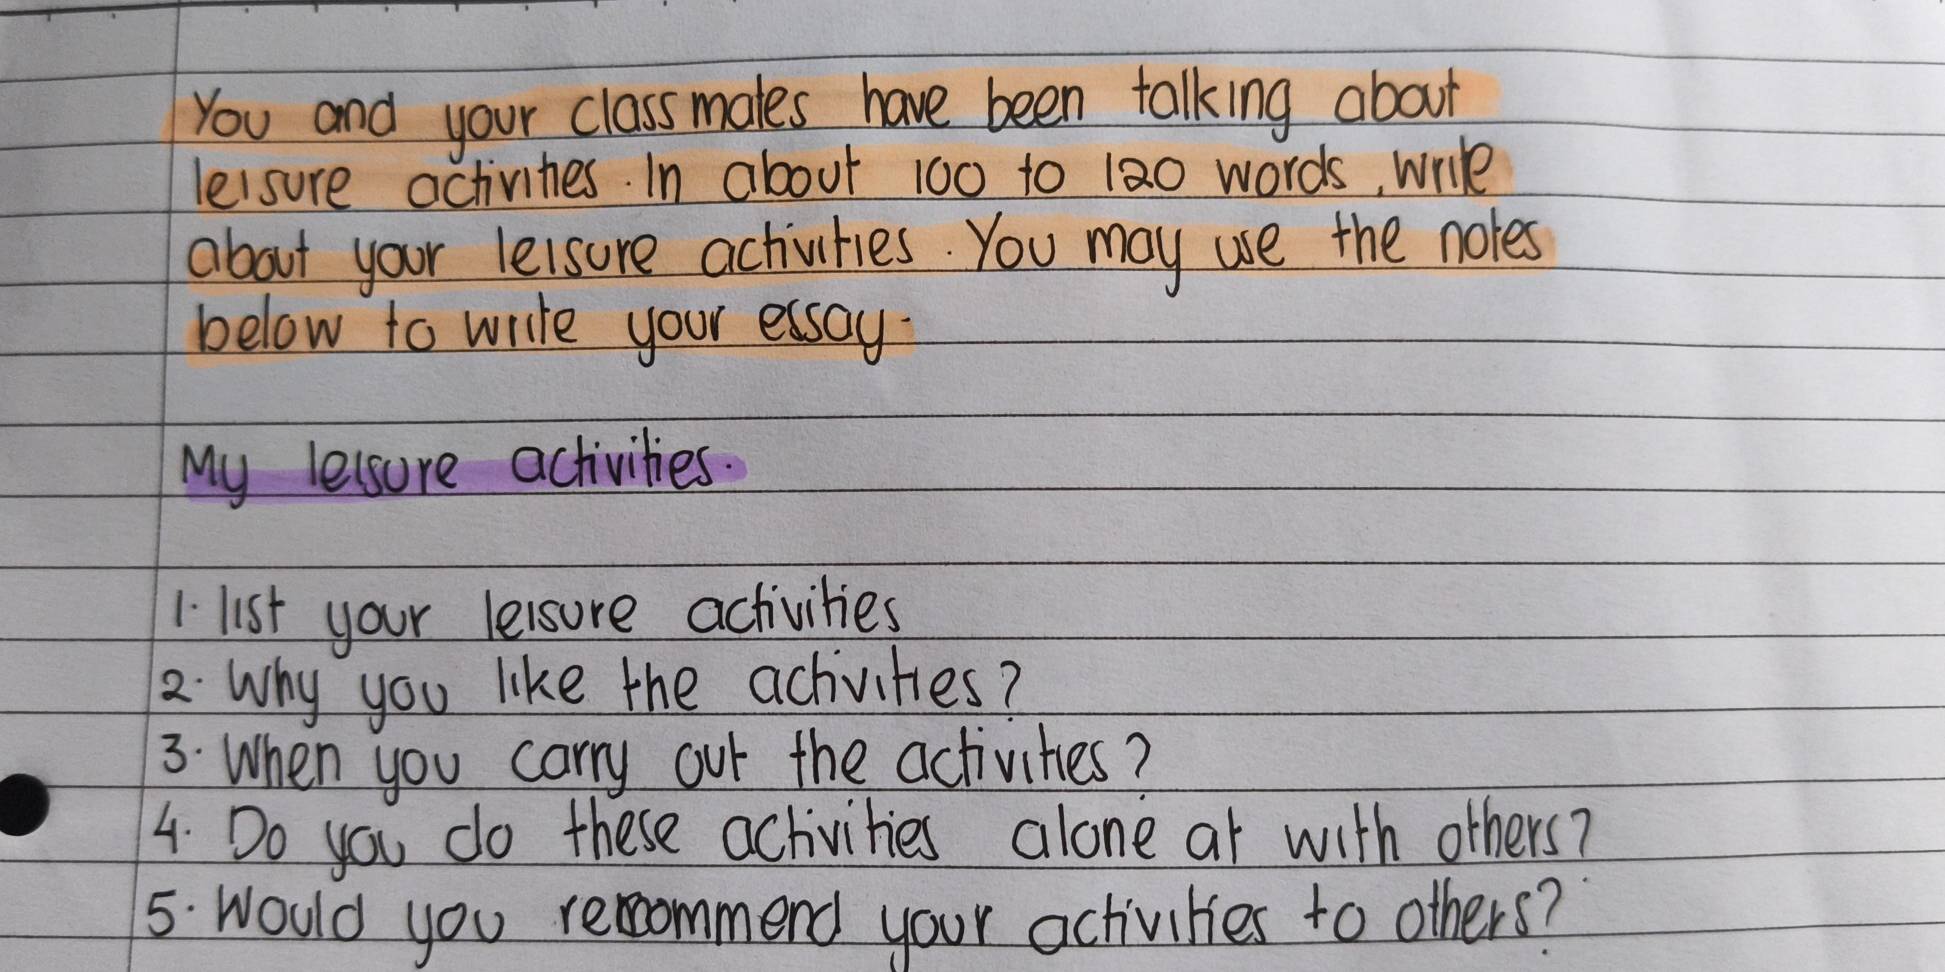 You and your classmates have been talking about
leisure activities. In about 100 to 120 words, write
about your leisure activities. You may use the notes
below to write your essay.
My leisure activities.
1. list your leisure activities
2. Why you like the activities?
3. When you carry out the activities?
4. Do you do these activities alone at with others?
5. Would you recommend your activities to others?